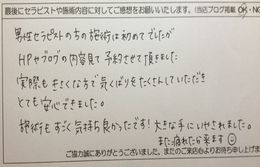 最後にセラピストや施術内容に対してご感想をお願いいたします。(当店ブログ掲載 OK・NO
男性セラピストの方の施術は初めてでしたが
HPやブログの内容見て予約させて頂きました
実際も気さくな方で気くばりをたくさんしていただき
とても安心できました。
施術もすごく気持ち良かったです!大きな手にいやされました。
また疲れたら来ます
ご協力誠にありがとうございました。またのご来店心よりお待ち申し上げま